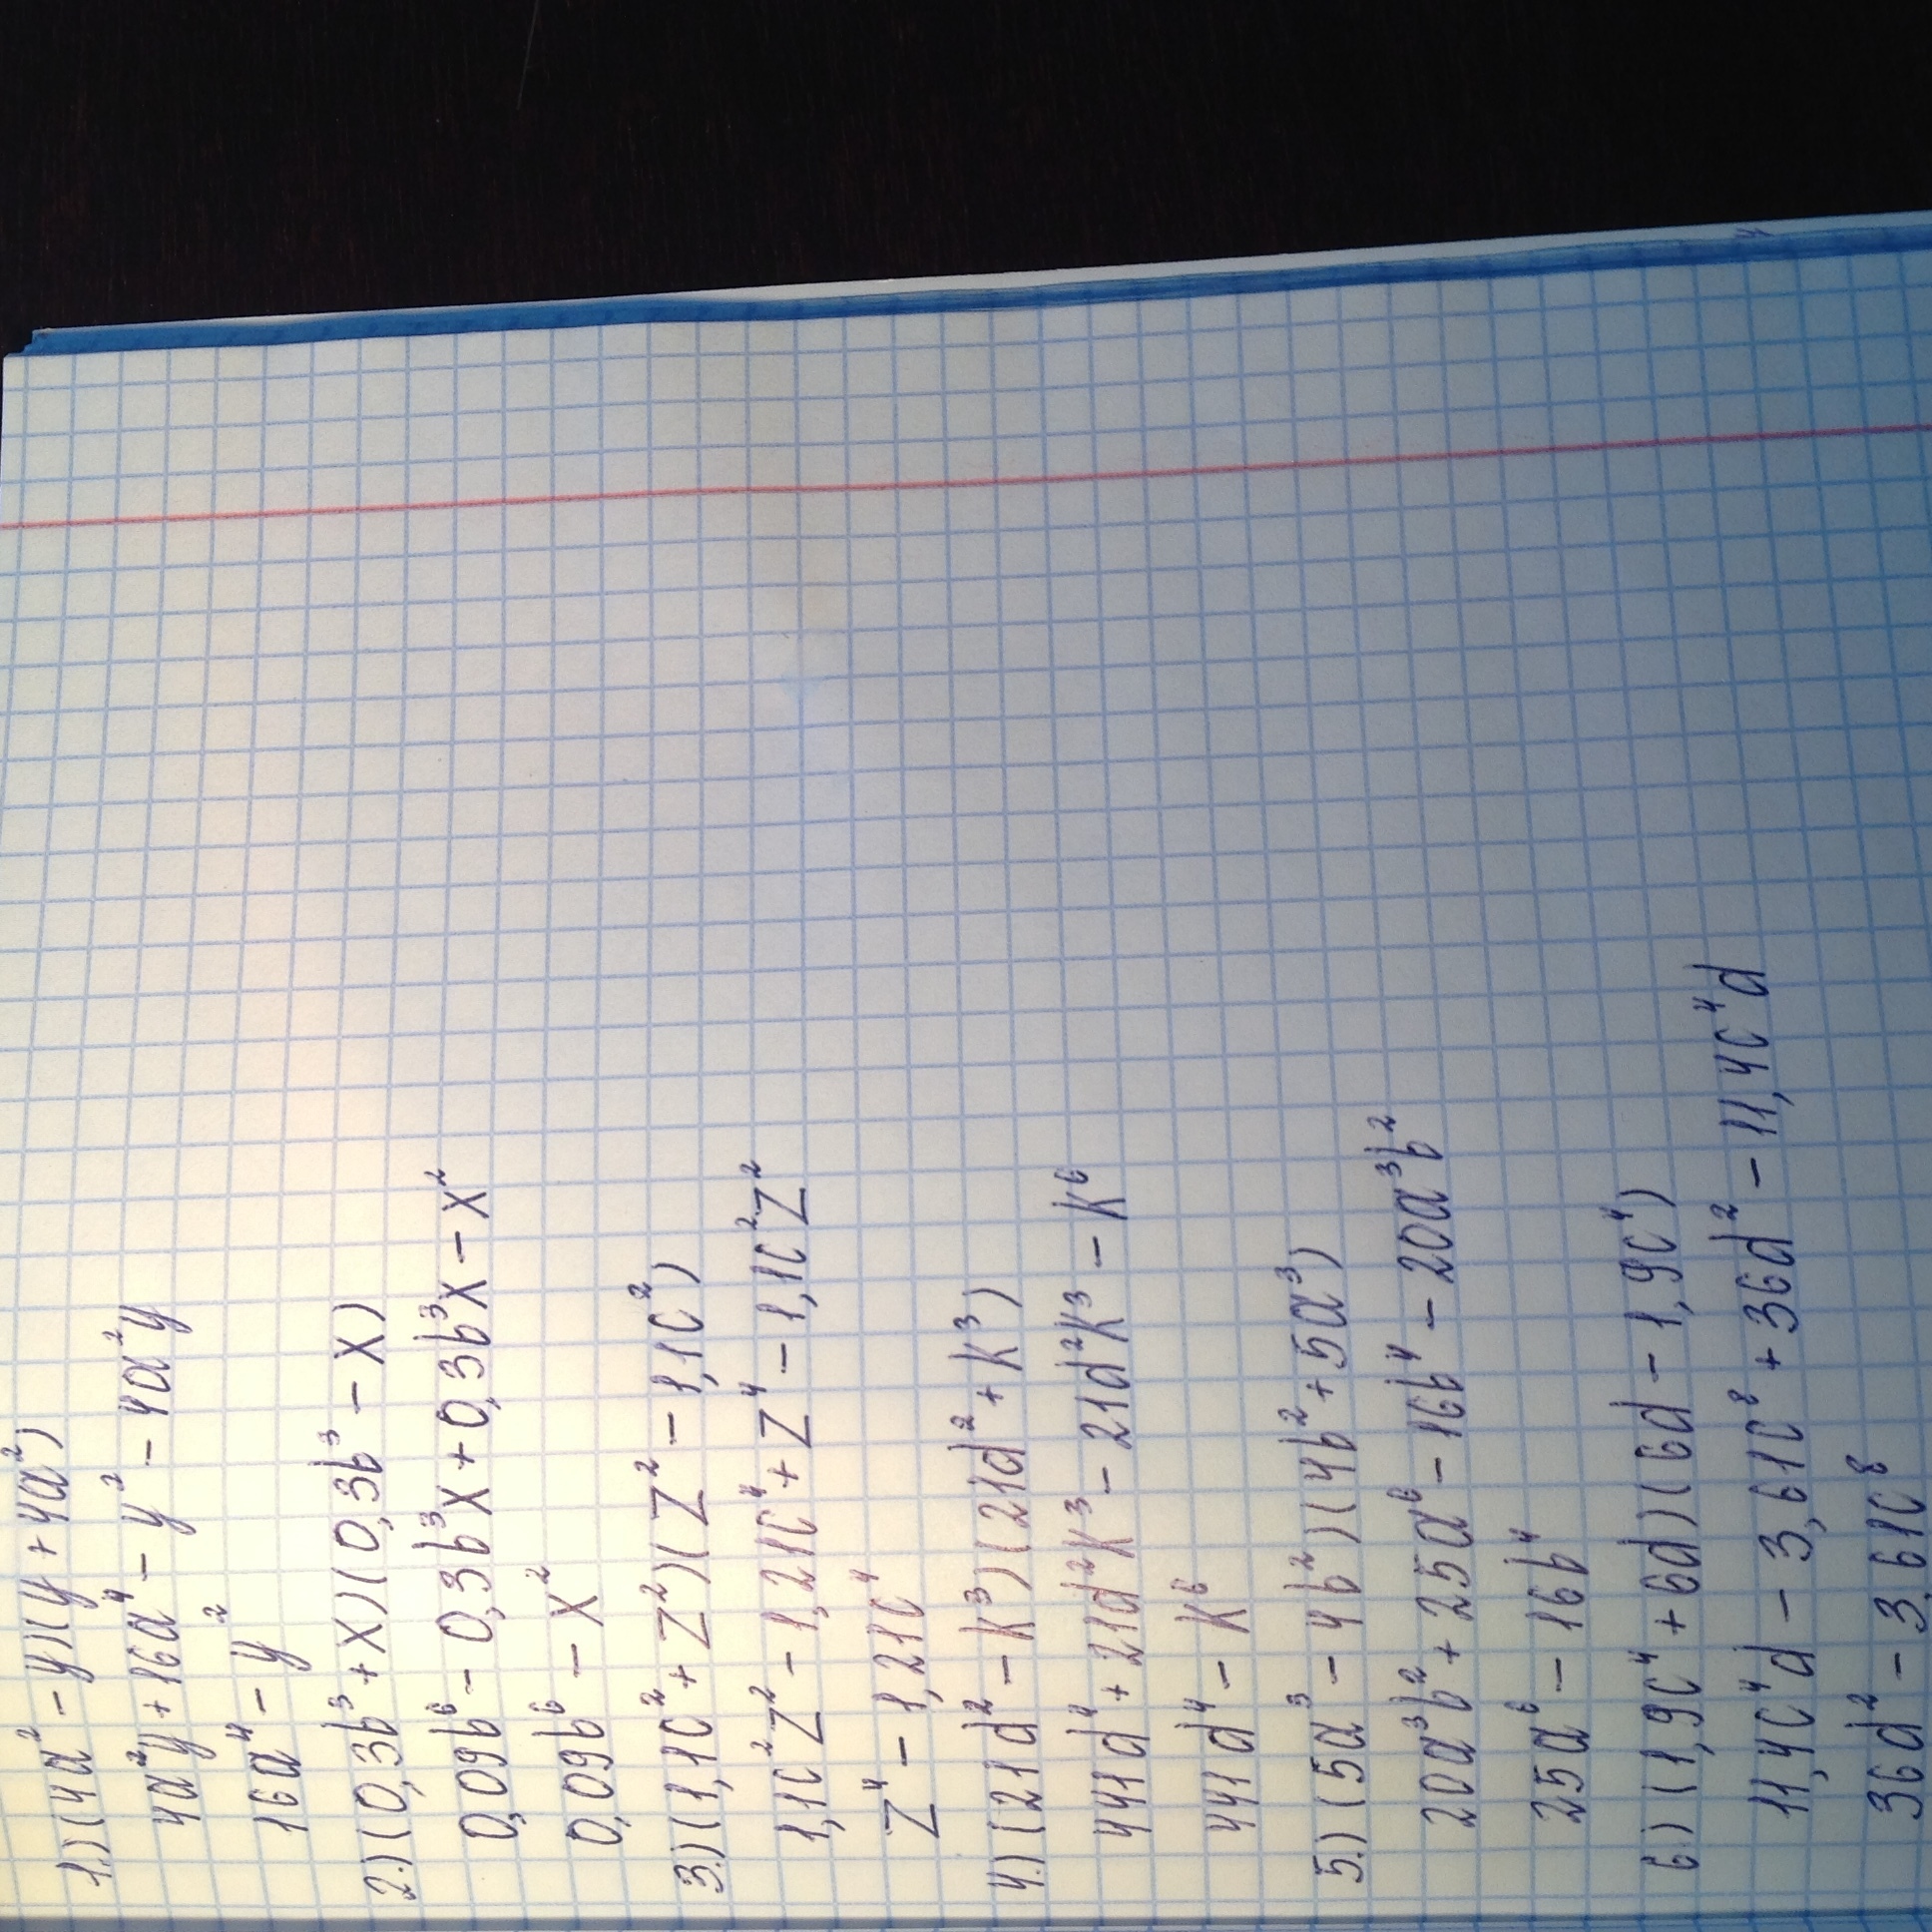 1.) (4a² - y)(y + 4a²)
4a²y + 16a⁴ - y² - 4a²y
16a⁴ - y²
2.) (0,3b³ + x)(0,3b³ - x)
0,09b⁶ - 0,3b³x + 0,3b³x - x²
0,09b⁶ - x²
3.) (1,1c² + z²)(z² - 1,1c²)
1,1c²z² - 1,21c⁴ + z⁴ - 1,1c²z²
z⁴ - 1,21c⁴
4.) (21d² - k³)(21d² + k³)
441d⁴ + 21d²k³ - 21d²k³ - k⁶
441d⁴ - k⁶
5.) (5a³ - 4b²)(4b² + 5a³)
20a³b² + 25a⁶ - 16b⁴ - 20a³b²
25a⁶ - 16b⁴
6.) (1,9c⁴ + 6d)(6d - 1,9c⁴)
11,4c⁴d - 3,61c⁸ + 36d² - 11,4c⁴d
36d² - 3,61c⁸